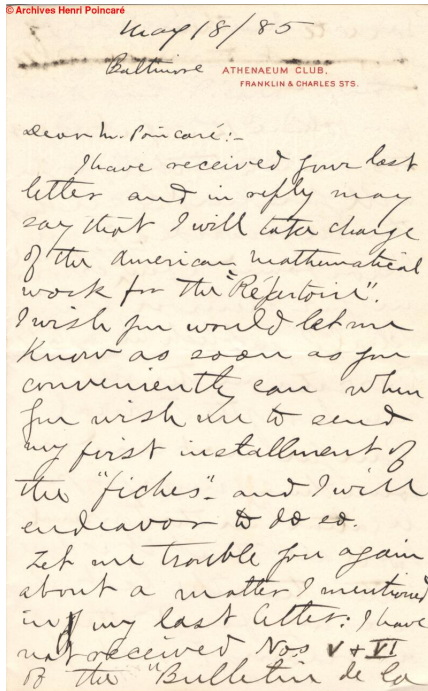 © Archives Henri Poincaré
May 18/85
Baltimore ATHENAEUM CLUB,
FRANKLIN & CHARLES STS.
Dear Mr. Poincaré:-
I have received your last
letter and in reply may
say that I will take charge
of the American mathematical
work for the "Répertoire".
I wish you would let me
know as soon as you
conveniently can when
you wish me to send
my first installment of
the "fiches" - and I will
endeavor to do so.
Let me trouble you again
about a matter I mentioned
in my last letter: I have
not received Nos V & VI
of the "Bulletin de la